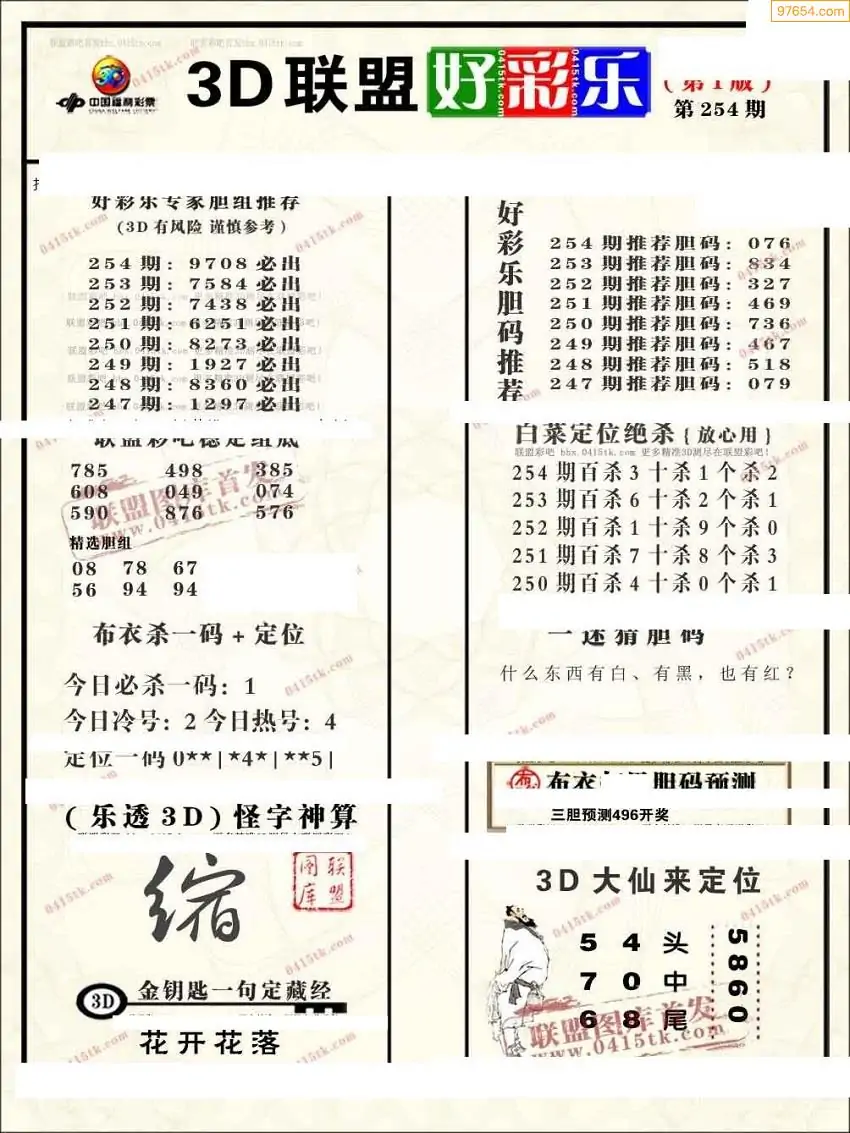 97654.com
联盟彩吧首发bbx.0415tk.com
中国福利彩票
CHINA WELFARE LOTTERY
3D联盟好彩乐
(第1版)
第254期
好彩乐专家胆组推荐
(3D有风险 谨慎参考)
254期: 9708必出
253期: 7584必出
252期: 7438必出
251期: 6251必出
250期: 8273必出
249期: 1927必出
248期: 8360必出
247期: 1297必出
联盟彩吧稳定组底
785 498 385
608 049 074
590 876 576
精选胆组
08 78 67
56 94 94
布衣杀一码+定位
今日必杀一码: 1
今日冷号: 2 今日热号: 4
定位一码 0**|*4*|**5|
(乐透3D)怪字神算
缩
联盟图库
3D 金钥匙一句定藏经
花开花落
好彩乐胆码推荐
254期推荐胆码: 076
253期推荐胆码: 834
252期推荐胆码: 327
251期推荐胆码: 469
250期推荐胆码: 736
249期推荐胆码: 467
248期推荐胆码: 518
247期推荐胆码: 079
白菜定位绝杀{放心用}
联盟彩吧 bbx.0415tk.com 更多精准3D测尽在联盟彩吧!
254期百杀3十杀1个杀2
253期百杀6十杀2个杀1
252期百杀1十杀9个杀0
251期百杀7十杀8个杀3
250期百杀4十杀0个杀1
一迷猜胆码
什么东西有白、有黑，也有红?
三胆预测496开奖
3D大仙来定位
5 4 头
7 0 中
6 8 尾
5860
联盟图库首发
www.0415tk.com